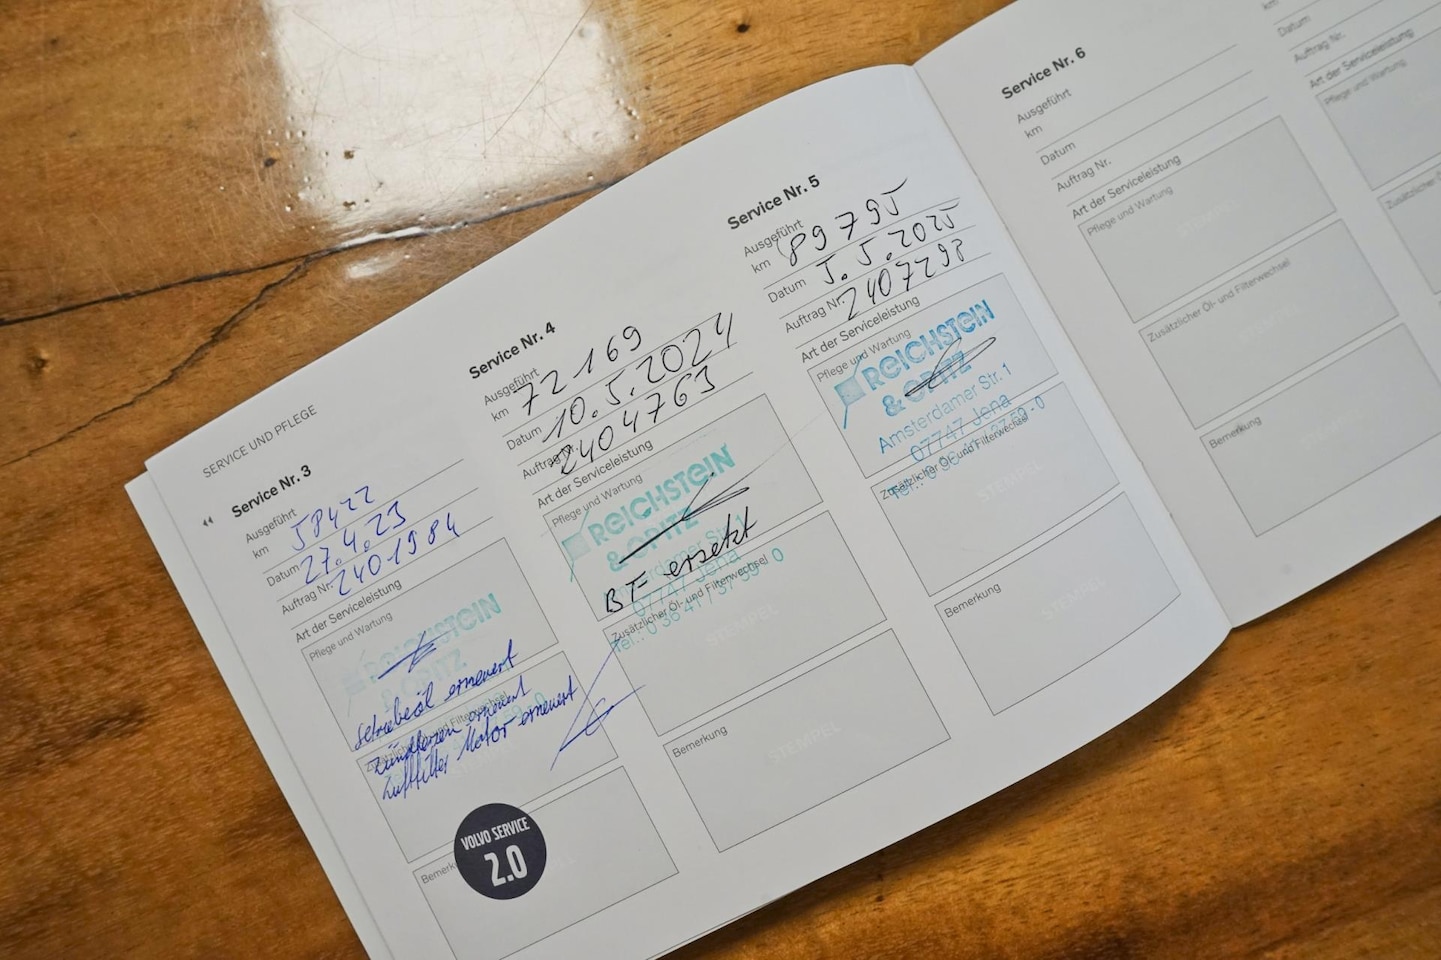 SERVICE UND PFLEGE
Service Nr. 3
Ausgeführt
km 58422
Datum 27.4.23
Auftrag Nr. 2401984
Art der Serviceleistung
Pflege und Wartung
REICHSTEIN
& OPITZ
Getriebeöl erneuert
Zündkerzen erneuert
Luftfilter Motor erneuert
Zusätzlicher Öl- und Filterwechsel
Bemerk
VOLVO SERVICE
2.0
Service Nr. 4
Ausgeführt
km 72169
Datum 10.5.2024
Auftrag Nr. 2404763
Art der Serviceleistung
Pflege und Wartung
REICHSTEIN
& OPITZ
Amsterdamer Str. 1
07747 Jena
Tel.: 0 36 41 / 37 59 - 0
BF ersetzt
Zusätzlicher Öl- und Filterwechsel
STEMPEL
Bemerkung
STEMPEL
Service Nr. 5
Ausgeführt
km 89795
Datum 5.5.2025
Auftrag Nr. 2407298
Art der Serviceleistung
Pflege und Wartung
REICHSTEIN
& OPITZ
Amsterdamer Str. 1
07747 Jena
Tel.: 0 36 41 / 37 59 - 0
Zusätzlicher Öl- und Filterwechsel
STEMPEL
Bemerkung
STEMPEL
Service Nr. 6
Ausgeführt
km
Datum
Auftrag Nr.
Art der Serviceleistung
Pflege und Wartung
Zusätzlicher Öl- und Filterwechsel
Bemerkung
km
Datum
Auftrag Nr.
Art der Serviceleistung
Pflege und Wartung
Zusätzlicher